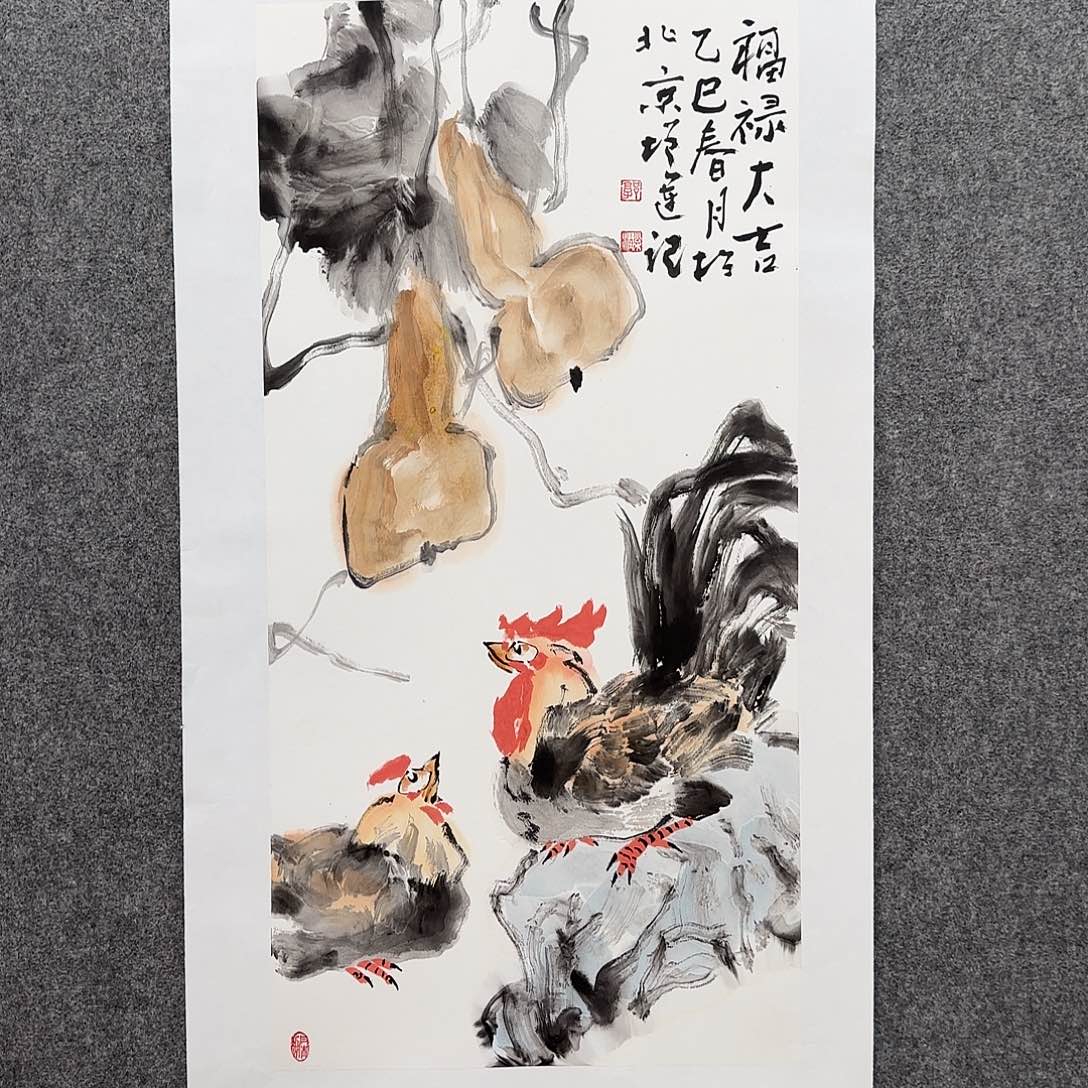 福禄大吉
乙巳春月於
北京增莲记